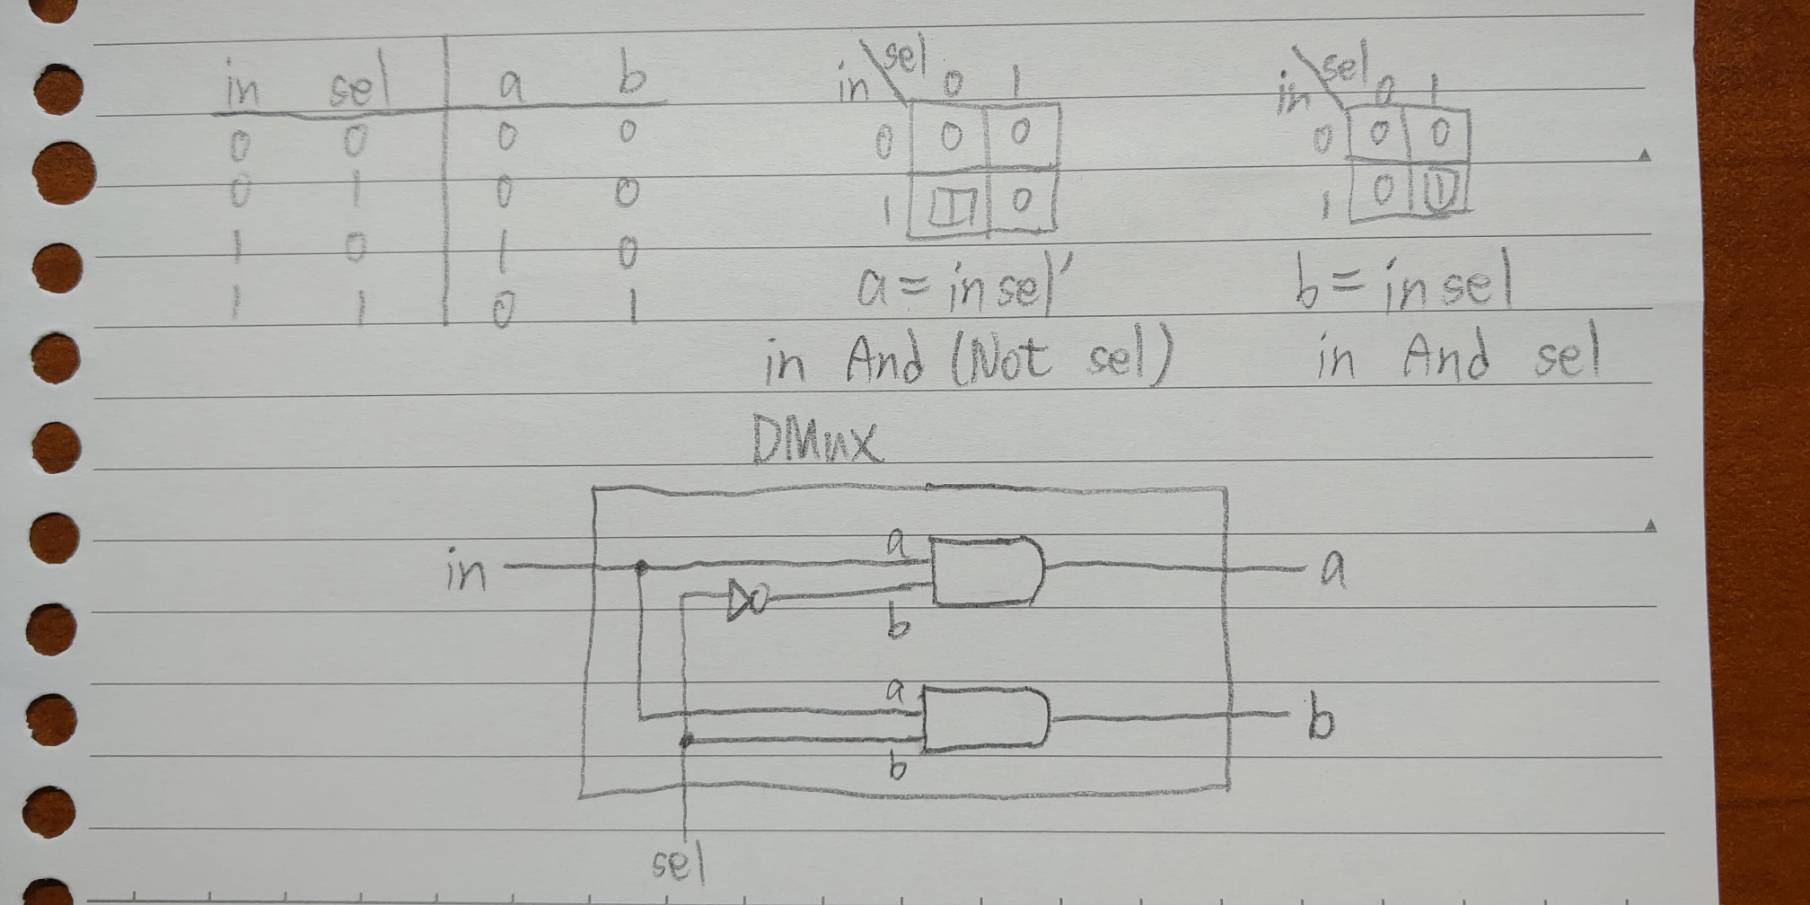 in sel a b
0 0 0 0
0 1 0 0
1 0 1 0
1 1 0 1
sel
in 0 1
0 0 0
1 1 0
a = in sel'
in And (Not sel)
sel
in 0 1
0 0 0
1 0 1
b = in sel
in And sel
DMux
a
in a
b
a
b
b
sel